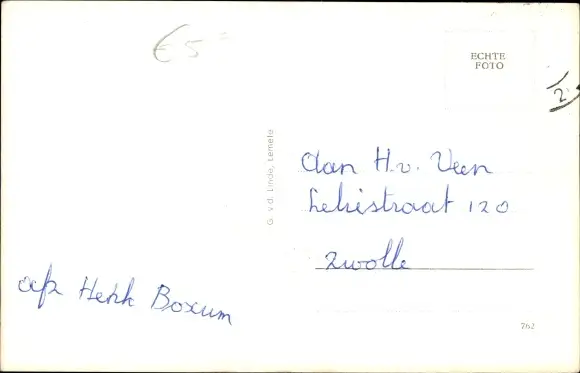 € 5 =
ECHTE
FOTO
2
G. v.d. Linde, Lemele
Aan H.v. Veen
Lelistraat 120
Zwolle
afz Henk Boxum
762